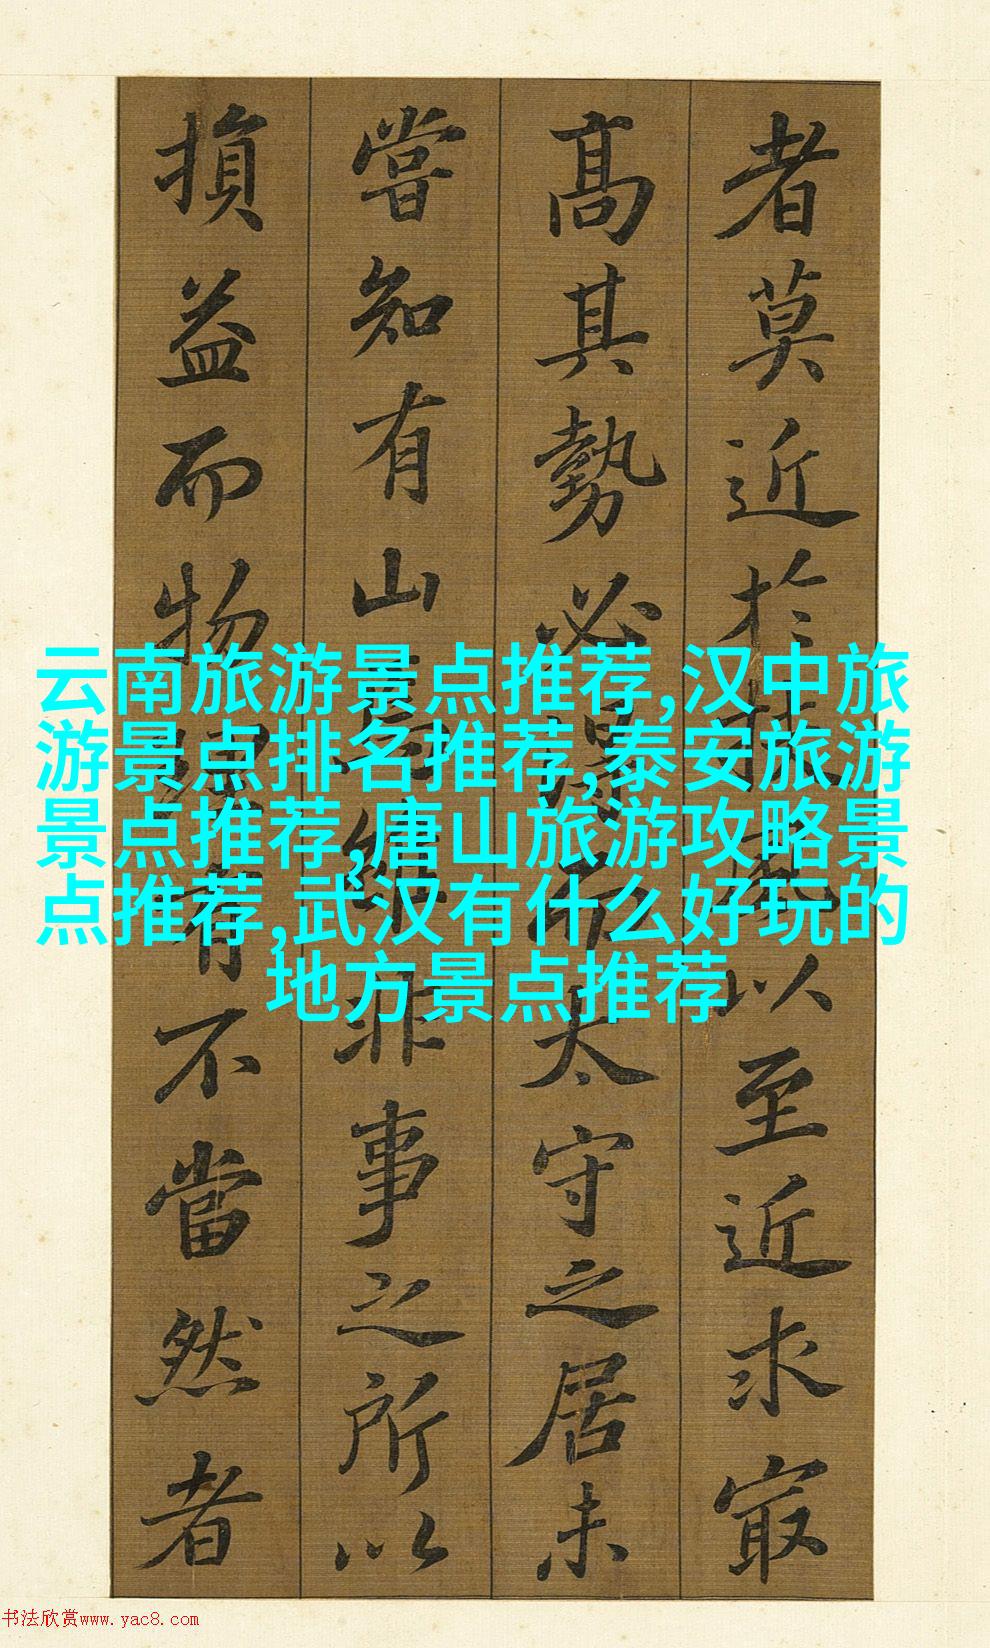 者莫近於扶風以至近求㝡
高其勢必得而太守之居未
嘗知有山焉雖非事之所以
損益而物理有不當然者
云南旅游景点推荐,汉中旅
游景点排名推荐,泰安旅游
景点推荐,唐山旅游攻略景
点推荐,武汉有什么好玩的
地方景点推荐
书法欣赏www.yac8.com